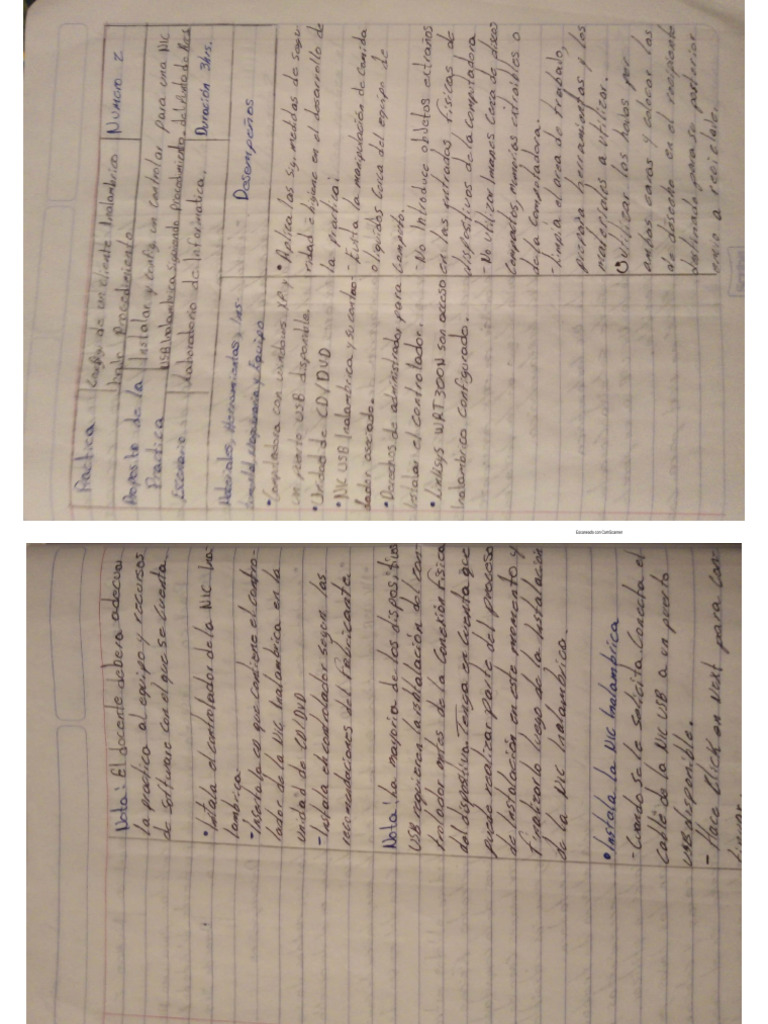 Practica
Config. de un cliente Inalambrico
Numero 2
Inalr Procedimiento
Proposito de la
Practica
Instalar y Config. un Controlar para una NIC
USB Inalambrica siguiendo Procedimiento. del Aula de Res
Escenario
Laboratorio de Informatica.
Duración 3hrs.
Materiales, Herramientas, Ins-
trumental, Maquinaria y Equipo
Desempeños
• Computadora con windows XP y
un puerto USB disponible.
• Unidad de CD/DVD
• NIC USB Inalambrica y su contro-
lador asociado.
• Derechos de administrador para
Instalar el controlador.
• Linksys WRT300N son acceso
Inalambrico Configurado.
• Aplica las Sig. medidas de segu
ridad e higiene en el desarrollo de
la practica:
- Evita la manipulación de Comida
o liquidos Cerca del equipo de
Computo.
- No Introduce objetos extraños
en las entradas fisicas de
dispositivos de la computadora
- No utilizar Imanes Cerca de discos
Compactos, memorias extraibles o
de la Computadora.
- Limpia el area de trabajo,
prepara herramientas y los
materiales a utilizar.
• Utilizar las hojas por
ambas caras y colocar las
de desecho en el recipiente
destinado para su posterior
envio a reciclaje.
Escaneado con CamScanner
Nota: El docente debera adecuar
la practica al equipo y recursos
de Software con el que se cuenta.
• Instala el controlador de la NIC Ina-
lambrica
• Inserta la CD que contiene el contro-
lador de la NIC Inalambrica en la
unidad de CD/DVD
- Instala el controlador según las
recomendaciones del Fabricante.
Nota: La mayoria de los dispositivos
USB requieren la instalación del con-
trolador antes de la Conexión fisica
del dispositivo. Tenga en cuenta que
puede realizar parte del proceso
de instalación en este momento y
finalizarlo luego de la Instalación
de la NIC Inalambrica.
• Instala la NIC Inalambrica
- Cuando se le solicita Conecta el
cable de la NIC USB a un puerto
USB disponible.
- Hace Click en Next para con-
tinuar.